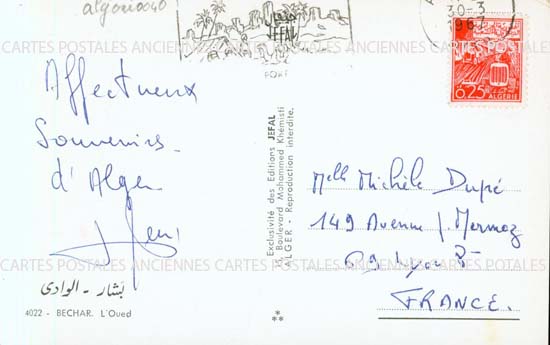 algerie0040
JEFAL
30-3
1967
0,25
ALGERIE
CARTES POSTALES ANCIENNES CARTES POSTALES ANCIENNES CARTES POSTALES ANCIENNES
Affectueux
Souvenirs
d'Alger
Exclusivité des Editions JEFAL
Boulevard Mohammed Khémisti
ALGER - Reproduction interdite.
Melle Michèle Dupé
149 Avenue J. Mermoz
69 Lyon 8e
FRANCE.
CARTES POSTALES ANCIENNES CARTES POSTALES ANCIENNES CARTES POSTALES ANCIENNES
بشار - الوادى
4022 - BECHAR. L'Oued